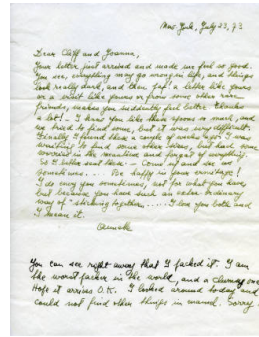 New York, July 23, 73
Dear Cliff and Joanna,
Your letter just arrived and made me feel so good.
You see, everything may go wrong in life, and things
look really dark, and then, Zap! a letter like yours
or a visit like yours or from some other rare
friends, makes you suddenly feel better. Thanks
a lot! - I knew you like these spoons so much, and
we tried to find some, but it was very difficult.
Finally I found these a couple of weeks ago. I was
wanting to find some other things, but had some
worries in the meantime and forgot everything.
So I better send these. - Come up and see us
sometimes..... Be happy in your
I do envy you sometimes, not for what you have,
but because you have such an extra ordinary
way of "sticking together".....I love you both, and
I mean it.
You can see right away that I packed it. I am
the worst packer in the world, and a clumsy one.
Hope it arrives O.K. I looked around today and
could not find other things in enamel. Sorry